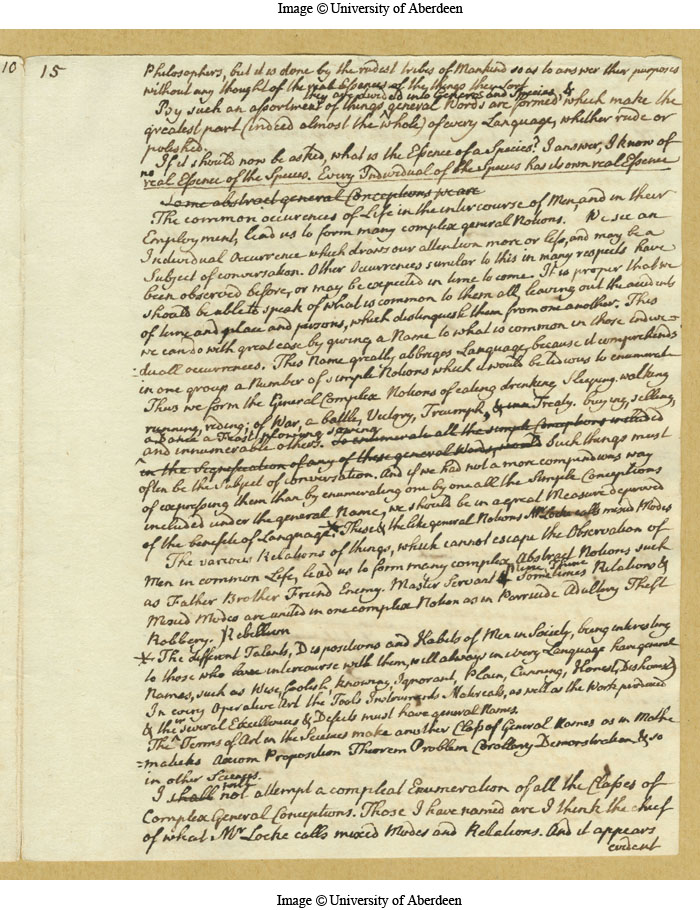 Image © University of Aberdeen
10
15
Philosophers, but it is done by the rudest tribes of Mankind so as to answer their purposes
without any thought of the real Essences of the things they sort.
they are divided into Genera and Species &
By such an assortment of things general Words are formed which make the
greatest part (indeed almost the whole) of every Language, whether rude or
polished.
If it should now be asked, what is the Essence of a Species? I answer, I know of
no real Essence of the Species. Every Individual of the Species has its own real Essence
Some abstract general Conceptions we are
The common occurences of Life in the intercourse of Men, and in their
Employment, lead us to form many complex general Notions. We see an
Individual Occurrence which draws our attention more or less, and may be a
Subject of conversation. Other Ocurrences similar to this in many respects have
been observed before, or may be expected in time to come. It is proper that we
should be able to speak of what is common to them all leaving out the accidents
of time and place and persons, which distinguish them from one another. This
we can do with great ease by giving a Name to what is common in those indivi=
=duall occurrences. This Name greatly abbriges Language, because it comprehends
in one group a Number of simple Notions which it would be tedious to enumerate
Thus we form the General Complex Notions of eating drinking Sleeping. walking
running, riding; of War, a battle, Victory, Triumph, Treaty. buying, selling,
a Dance a Feast plowing sowing
and innumerable others. To enumerate all the simple Conceptions included
in the Signification of any of these general Words, would Such things must
often be the Subject of conversation. And if we had not a more compendious way
of expressing them than by enumerating one by one all the Simple Conceptions
included under the general Name, we should be in a great Measure deprived
of the benefite of Language. These & the like general Notions Mr Locke calls mixed Modes
The various Relations of things, which cannot escape the Observation of
Men in common Life, lead us to form many complex Abstract Notions such
as Father Brother Friend Enemy. Master Servant Mine Thine Sometimes Relations &
Mixed Modes are united in one complex Notion as in Parricide Adultery Theft
Robbery. Rebellion
The different Talents, Dispositions and Habits of Men in Society, being interesting
to those who have intercourse with them, will always in every Language have general
Names, such as Wise, foolish, knowing, Ignorant, Plain, Cunning, Honest, Dishonest
In every Operative Art the Tools Instruments Materials, as well as the Work produced
& their several Excellencies & Defects must have general Names.
The Terms of Art in the Sciences make another Class of General Names as in Mathe
=maticks Axiom Proposition Theorem Problem Corollary Demonstration & so
in other Sciences.
I shall not attempt a compleat Enumeration of all the Classes of
Complex General Conceptions. Those I have named are I think the chief
of what Mr Locke calls mixed Modes and Relations. And it appears
evident
Image © University of Aberdeen